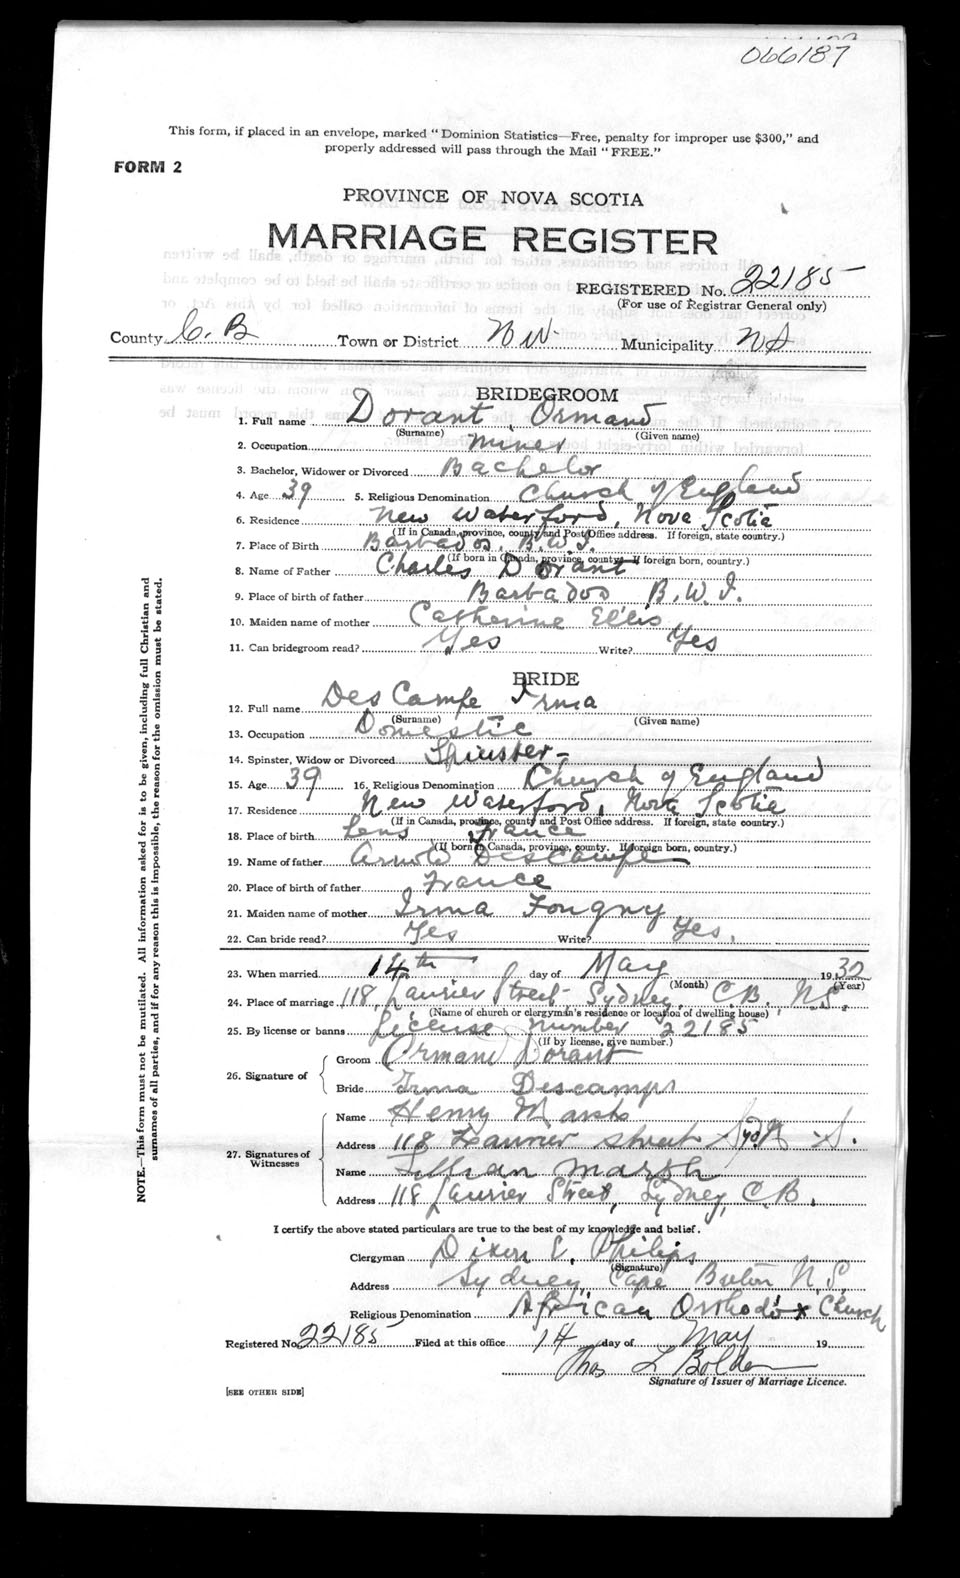 066187
This form, if placed in an envelope, marked "Dominion Statistics—Free, penalty for improper use $300," and
properly addressed will pass through the Mail "FREE."
FORM 2
PROVINCE OF NOVA SCOTIA
MARRIAGE REGISTER
REGISTERED No. 22185
(For use of Registrar General only)
County C. B Town or District N W Municipality N S
BRIDEGROOM
1. Full name Dorant, Ormand
(Surname) (Given name)
2. Occupation Miner
3. Bachelor, Widower or Divorced Bachelor
4. Age 39 5. Religious Denomination Church of England
6. Residence New Waterford, Nova Scotia
(If in Canada, province, county and Post Office address. If foreign, state country.)
7. Place of Birth Barbados, B.W.I.
(If born in Canada, province, county. If foreign born, country.)
8. Name of Father Charles Dorant
9. Place of birth of father Barbados B.W.I.
10. Maiden name of mother Catherine Ellis
11. Can bridegroom read? Yes Write? Yes
BRIDE
12. Full name DesCampe Irma
(Surname) (Given name)
13. Occupation Domestic
14. Spinster, Widow or Divorced Spinster-
15. Age 39 16. Religious Denomination Church of England
17. Residence New Waterford, Nova Scotia
(If in Canada, province, county and Post Office address. If foreign, state country.)
18. Place of birth Lens France
(If born in Canada, province, county. If foreign born, country.)
19. Name of father Arnold DesCampe
20. Place of birth of father France
21. Maiden name of mother Irma Fougny
22. Can bride read? Yes Write? Yes.
23. When married 14th day of May 1932
(Month) (Year)
24. Place of marriage 118, Laurier Street, Sydney, C.B. N.S.
(Name of church or clergyman's residence or location of dwelling house)
25. By license or banns License number 22185
(If by license, give number.)
26. Signature of
Groom Ormand Dorant
Bride Irma Descamps
27. Signatures of Witnesses
Name Henry Marsh
Address 118 Laurier Street Syd N. S.
Name Lillian Marsh
Address 118 Laurier Street, Sydney, C.B.
I certify the above stated particulars are true to the best of my knowledge and belief.
Clergyman Dixon E. Philips
(Signature)
Address Sydney, Cape Breton N.S.
Religious Denomination African Orthodox Church
Registered No. 22185 Filed at this office 14 day of May 19
Thos L Bolden
Signature of Issuer of Marriage Licence.
[SEE OTHER SIDE]
NOTE.—This form must not be mutilated. All information asked for is to be given, including full Christian and
surnames of all parties, and if for any reason this is impossible, the reason for the omission must be stated.